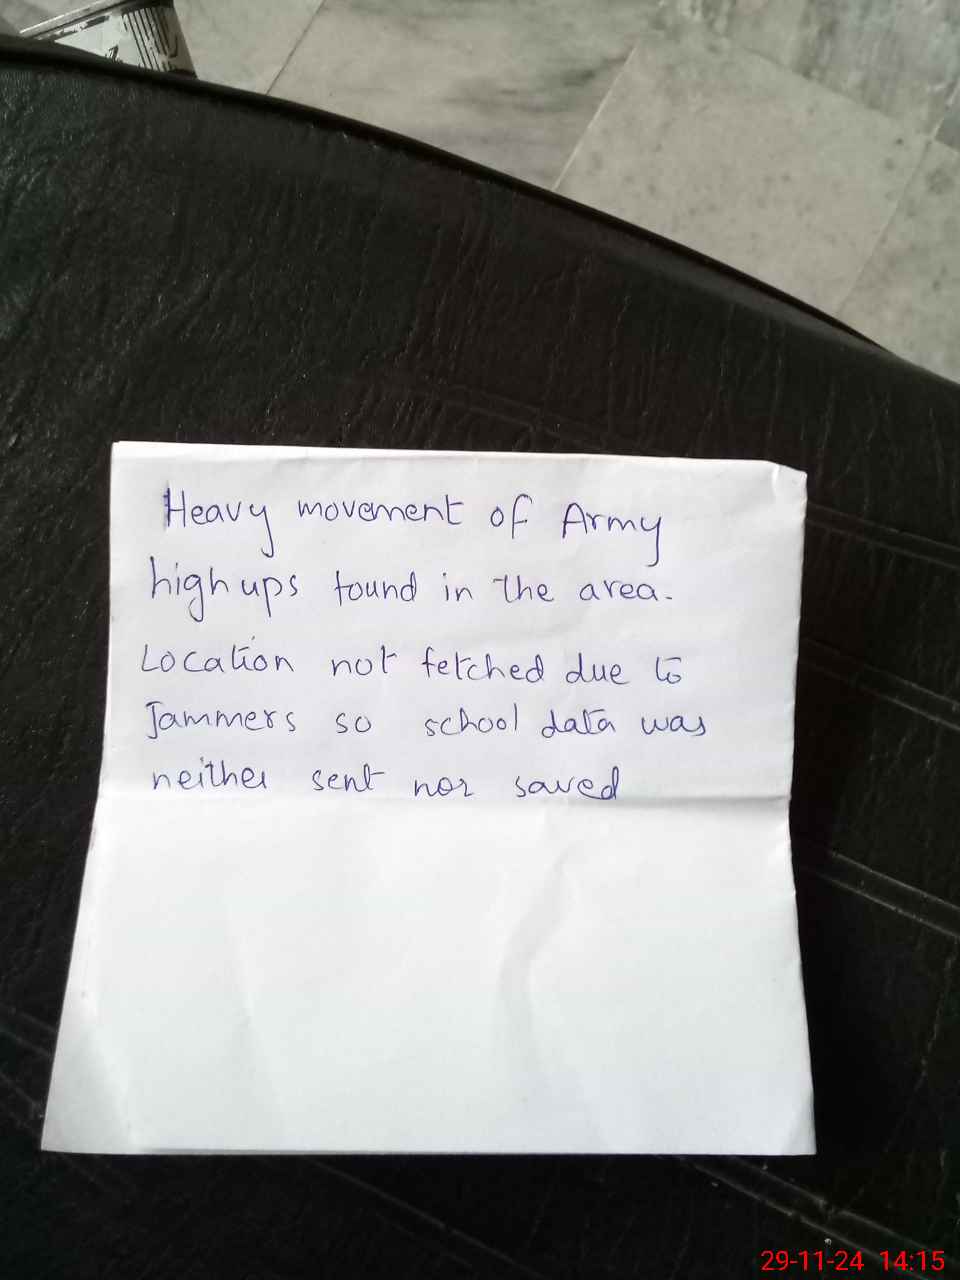 Heavy movement of Army
high ups found in the area.
Location not fetched due to
Jammers so school data was
neither sent nor saved
29-11-24 14:15